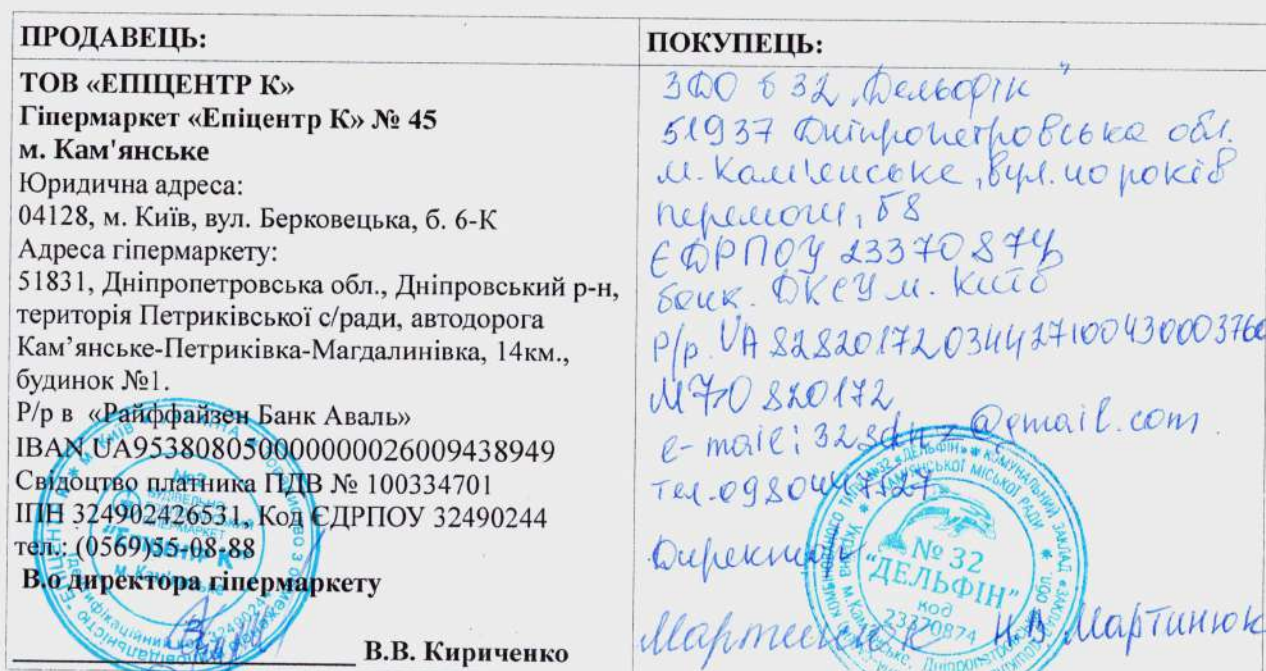 ПРОДАВЕЦЬ:
ТОВ «ЕПІЦЕНТР К»
Гіпермаркет «Епіцентр К» № 45
м. Кам'янське
Юридична адреса:
04128, м. Київ, вул. Берковецька, б. 6-К
Адреса гіпермаркету:
51831, Дніпропетровська обл., Дніпровський р-н,
територія Петриківської с/ради, автодорога
Кам’янське-Петриківка-Магдалинівка, 14км.,
будинок №1.
Р/р в «Райффайзен Банк Аваль»
IBAN UA953808050000000026009438949
Свідоцтво платника ПДВ № 100334701
ІПН 324902426531, Код ЄДРПОУ 32490244
тел.: (0569)55-08-88
В.о директора гіпермаркету
В.В. Кириченко
ПОКУПЕЦЬ:
ЗДО 32 „Дельфін"
51937 Дніпропетровська обл.
м. Кам'янське, вул. 40 років
перемоги, б8
ЄДРПОУ 23370874
банк. ДКСУ м. Київ
Р/р. UA 828201720344271004300003760
МФО 820172
e-mail: @gmail.com.
Тел.
Директор
Мартинюк Н.В Мартинюк
№ 32
"ДЕЛЬФІН"
код
23370874